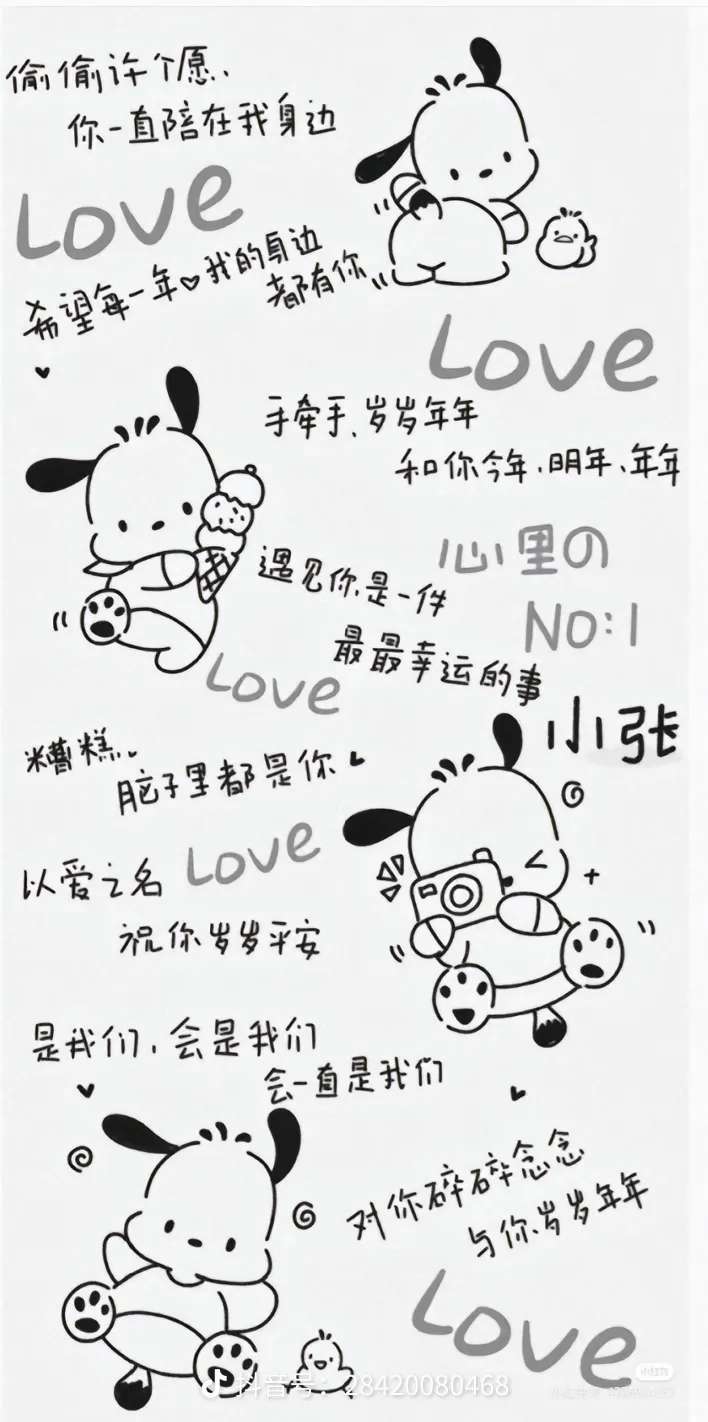 偷偷许个愿、
你一直陪在我身边
Love
希望每一年♥我的身边
都有你
Love
手牵手、岁岁年年
和你今年、明年、年年
心里の
NO:1
遇见你是一件
最最幸运的事
Love
小张
糟糕、
脑子里都是你
Love
以爱之名
祝你岁岁平安
是我们，会是我们
会一直是我们
对你碎碎念念
与你岁岁年年
Love
小红书
抖音号：28420080468